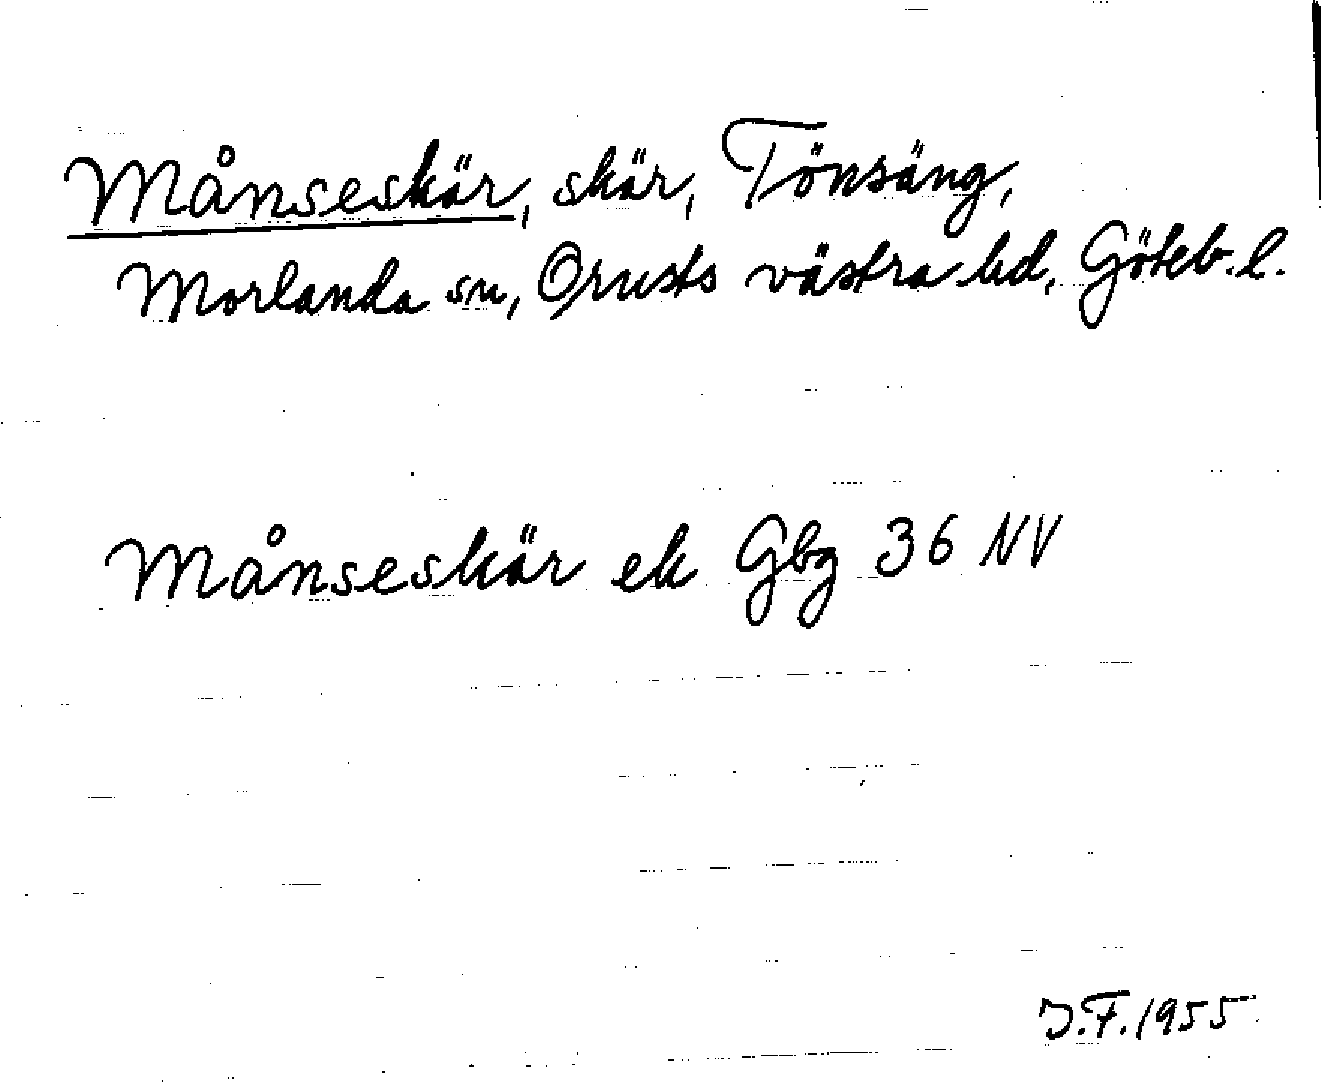 Månseskär, skär, Tönsäng,
Morlanda sn, Orusts västra hd, Göteb. l.
Månseskär ek Gbg 36 NV
J.F. 1955